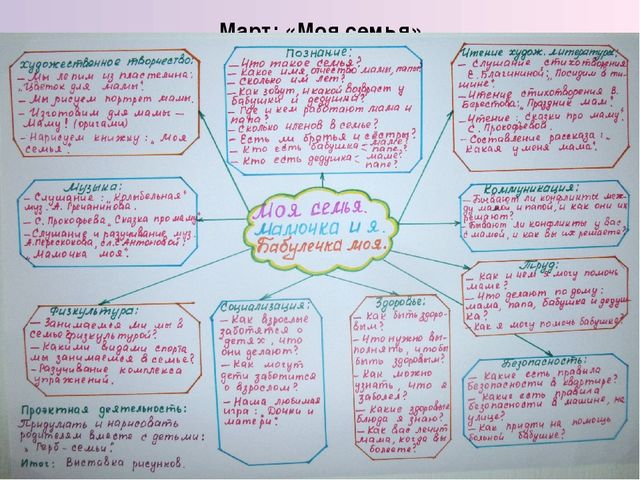 Март: «Моя семья»
Художественное творчество:
– Мы лепим из пластелина:
"Цветок для мамы".
– Мы рисуем портрет мамы.
– Изготовим для мамы –
Маму! (оригами)
– Нарисуем книжку: „Моя
семья".
Познание:
– Что такое семья?
– Какое имя, отчество мамы, папы,
– сколько им лет?
– Как зовут, и какой возраст у
бабушки и дедушки?
– Где и кем работают мама и
папа?
– Сколько членов в семье?
– Есть ли братья и сёстры?
– Кто есть бабушка – маме?
папе?
– Кто есть дедушка – маме?
папе?
Чтение худож. литературы:
– Слушание стихотворения
Е. Благининой: „Посидим в ти-
шине".
– Чтение стихотворения В.
Берестова: „Праздник мам".
– Чтение: „Сказки про маму"
С. Прокофьевой.
– Составление рассказа: „
Какая у меня мама".
Музыка:
– Слушание: „Колыбельная"
муз. А. Гречанинова.
– С. Прокофьева „Сказка про маму".
– Слушание и разучивание муз.
А. Перескокова, сл. С. Антоновой:
„Мамочка моя".
Моя семья.
Мамочка и я.
Бабулечка моя.
Коммуникация:
– Бывают ли конфликты меж-
ду мамой и папой, и как они их
решают?
– Бывают ли конфликты у вас
с мамой, и как вы их решаете?
Труд:
– Как и чем я могу помочь
маме?
– Что делают по дому:
мама, папа, бабушка и дедуш-
ка?
– Как я могу помочь бабушке?
Физкультура:
– Занимаемся ли мы в
семье физкультурой?
– Какими видами спорта
мы занимаемся в семье?
– Разучивание комплекса
упражнений.
Социализация:
– Как взрослые
заботятся о
детях, что
они делают?
– Как могут
дети заботится
о взрослом?
– Наша любимая
игра: „Дочки и
матери".
Здоровье:
– Как быть здоро-
вым?
– Что нужно вы-
полнять, чтобы
быть здоровым?
– Как можно
узнать, что я
заболел?
– Какие здоровые
блюда я знаю?
– Как вас лечит
мама, когда вы
болеете?
Безопасность:
– Какие есть правила
безопасности в квартире?
– Какие есть правила
безопасности в машине, на
улице?
– Как прийти на помощь
больной бабушке?
Проэктная деятельность:
Придумать и нарисовать
родителям вместе с детьми:
„Герб – семьи".
Итог: Выставка рисунков.